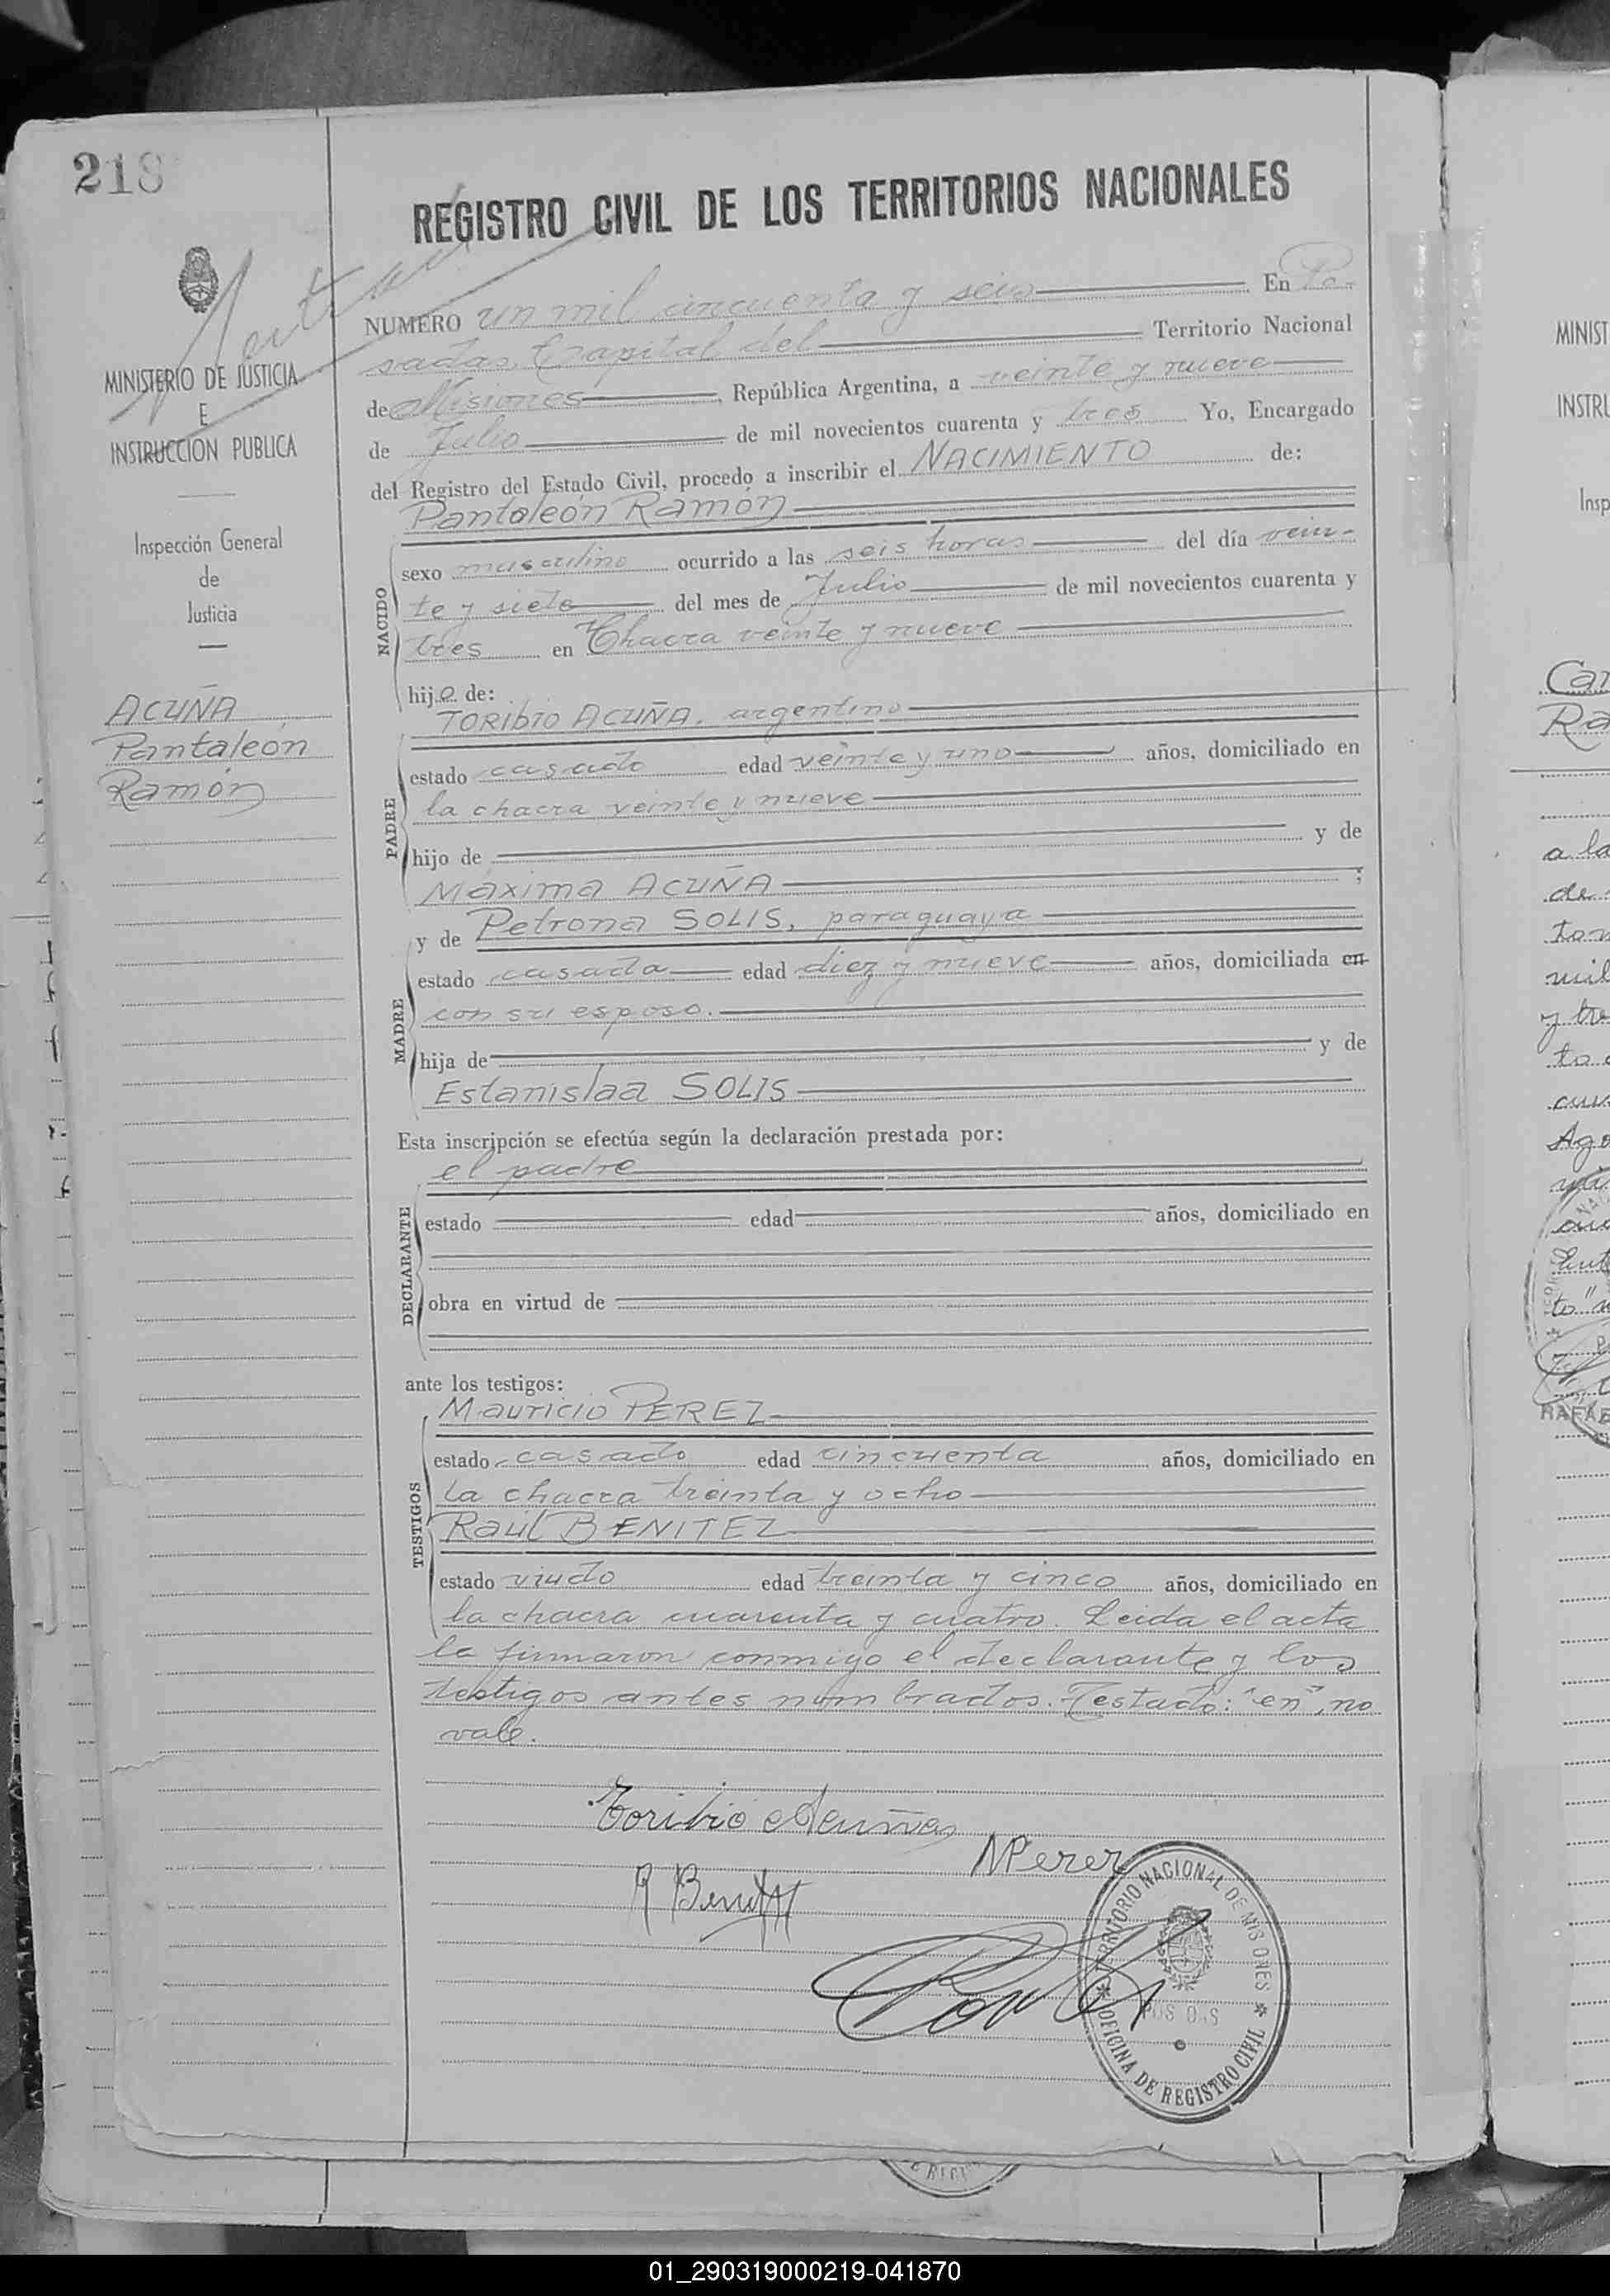 218
REGISTRO CIVIL DE LOS TERRITORIOS NACIONALES
MINISTERIO DE JUSTICIA
E
INSTRUCCION PUBLICA
Inspección General
de
Justicia
ACUÑA
Pantaleón
Ramón
NUMERO un mil cincuenta y seis En Po-
sadas, Capital del Territorio Nacional
de Misiones, República Argentina, a veinte y nueve
de Julio de mil novecientos cuarenta y tres Yo, Encargado
del Registro del Estado Civil, procedo a inscribir el NACIMIENTO de:
Pantaleón Ramón
NACIDO
sexo masculino ocurrido a las seis horas del día vein-
te y siete del mes de Julio de mil novecientos cuarenta y
tres en Chacra veinte y nueve
hijo de:
TORIBIO ACUÑA, argentino
PADRE
estado casado edad veinte y uno años, domiciliado en
la chacra veinte y nueve
hijo de y de
Máxima ACUÑA ;
y de Petrona SOLIS, paraguaya
MADRE
estado casada edad diez y nueve años, domiciliada en
con su esposo.
hija de y de
Estanislaa SOLIS
Esta inscripción se efectúa según la declaración prestada por:
el padre
DECLARANTE
estado edad años, domiciliado en
obra en virtud de
ante los testigos:
Mauricio PEREZ
TESTIGOS
estado casado edad cincuenta años, domiciliado en
la chacra treinta y ocho
Raúl BENITEZ
estado viudo edad treinta y cinco años, domiciliado en
la chacra cuarenta y cuatro. Leida el acta
la firmaron conmigo el declarante y los
testigos antes nombrados. Testado: "en", no
vale.
Toribio Acuña
MPerez
R Benitez
TERRITORIO NACIONAL DE MISIONES
POSADAS
OFICINA DE REGISTRO CIVIL
MINIST
INSTRU
Insp
Ra
a la
de
mil
y tre
to
Ago
to"
RAFAE
01_290319000219-041870